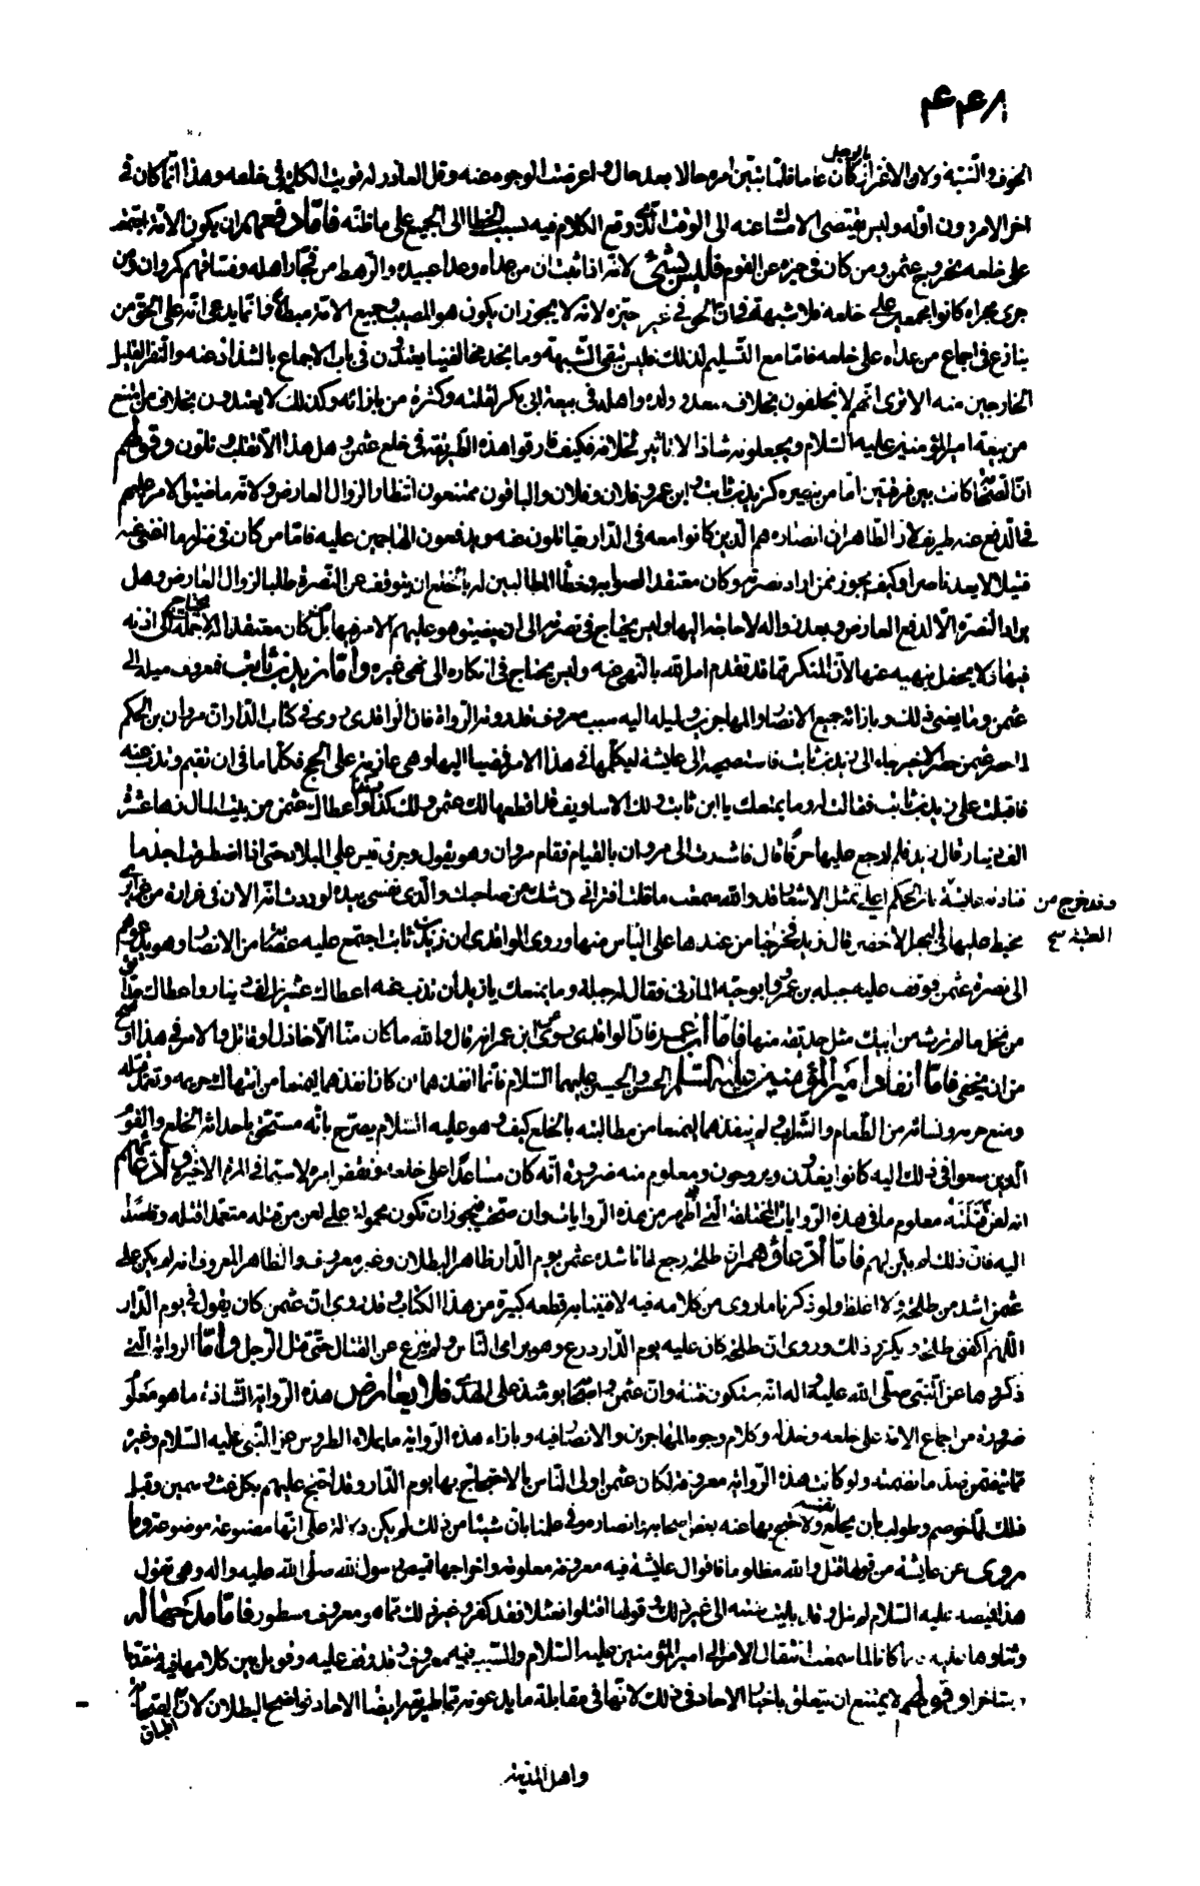 ٤٤٨
الخوف والتنبيه ولان الاغترار بالرجل كان عاما فلما تبين امره حالا بعد حال واعرضت الوجوه عنه وقل العاذر له قويت الكلمة في خلعه وهذا انما كان في
اخر الامر دون اوله وليس يقتضي الامساك عنه الى الوقت الذي وقع الكلام فيه نسبة الخطا الى الجميع على ما ظنه فاما دفعهم ان يكون الامة اجتمعت
على خلعه بخروج عثمن ومن كان في حيزه عن القوم فليس بشئ لانه اذا ثبت ان من عداه وعدا عبيده والرهط من فجار اهله وفساقهم كمروان ومن
جرى مجراه كانوا مجمعين على خلعه فلا شبهة في ان الحق في غير حيزه لانه لا يجوز ان يكون هو المصيب وجميع الامة مبطل وانما يدعي انه على الحق من
ينازع في اجماع من عداه على خلعه فاما مع التسليم لذلك فليس تبقى الشبهة وما نجد مخالفينا يعتدون في باب الاجماع بالشذاذ عنه والنفر القليل
الخارجين منه الا ترى انهم لا يحفلون بخلاف سعد وولده واهله في بيعة ابي بكر لقلتهم وكثرة من بازائهم وكذلك لا يعتدون بخلاف من امتنع
من بيعة امير المؤمنين عليه السلام ويجعلونه شاذا لا تاثير لخلافه فكيف فارقوا هذه الطريقة في خلع عثمن وهل هذا الا تقلب وتلون وقولهم
ان الصحابة كانت بين فرقتين اما من نصره كزيد بن ثابت وابن عمر وفلان وفلان والباقون ممتنعون انتظارا لزوال العارض ولانه ما ضيق الامر عليهم
في الدفع عنه طريف لان الظاهر ان انصاره هم الذين كانوا معه في الدار يقاتلون عنه ويدفعون الهاجمين عليه فاما من كان في منزله ما اغنى عنه
فتيلا لا يعد ناصرا وكيف يجوز ممن اراد نصرته وكان معتقدا لصوابه وخطا المطالبين له بالخلع ان يتوقف عن النصرة طلبا لزوال العارض وهل
يراد النصرة الا لدفع العارض وبعد زواله لا حاجة اليها وليس يحتاج في نصرته الى ان يضيق هو عليهم الامر فيها بل من كان معتقدا لها لا يحتاج الى اذنه
فيها ولا يحفل بنهيه عنها لان المنكر مما قد تقدم امر الله بالنهي عنه وليس يحتاج في انكاره الى نهي غيره واما زيد بن ثابت فمعروف ميله الى
عثمن وما يغني ذلك وبازائه جميع الانصار والمهاجرين ولميله اليه سبب معروف قد روته الرواة فان الواقدي روى في كتاب الدار ان مروان بن الحكم
لما حصر عثمن الحصر الاخير جاء الى زيد بن ثابت فاستصحبه الى عايشة ليكلمها في هذا الامر فمضيا اليها وهي عازمة على الحج فكلماها في ان تقيم وتذب عنه
فاقبلت على زيد بن ثابت فقالت له وما يمنعك يا ابن ثابت ولك الاساويف قد اقطعها لك عثمن ولك كذا وكذا واعطاك عثمن من بيت المال زهاء عشرة
الف دينار قال زيد فلم ارجع عليها حرفا قال فاشارت الى مروان بالقيام فقام مروان وهو يقول وحرق قيس علي البلاد حتى اذا اضطرمت اجذما
فنادته عايشة وقد خرج من العتبة يا ابن الحكم اعلي تمثل الاشعار قد والله سمعت ما قلت اتراني في شك من صاحبك والذي نفسي بيده لوددت انه الان في غرارة من غرايري
مخيط عليها فالقيه في البحر الاخضر قال زيد فخرجنا من عندها على الياس منها وروى الواقدي ان زيد بن ثابت اجتمع عليه عصابة من الانصار وهو يدعوهم
الى نصرة عثمن فوقف عليه جبلة بن عمرو بن حبة المازني فقال له جبلة وما يمنعك يا زيد ان تذب عنه اعطاك عشرة الف دينار واعطاك حدائق
من نخل ما لم ترثه من ابيك مثل حديقة منها فاما ابن عمر فان الواقدي روى عن ابن عمر انه قال والله ما كان منا الا خاذل او قاتل والامر في هذا اوضح
من ان يخفى فاما انفاذ امير المؤمنين عليه السلم الحسن والحسين عليهما السلام فانما انفذهما ان كان انفذهما ليمنعا من انتهاك حريمه وتعمد قتله
ومنع حرمه ونسائه من الطعام والشراب ولم ينفذهما ليمنعا من مطالبته بالخلع كيف وهو عليه السلام يصرح بانه مستحق باحداثه الخلع والقوم
الذين سعوا في ذلك اليه كانوا يغدون ويروحون ومعلوم منه ضرورة انه كان مساعدا على خلعه ونقض امره لا سيما في المرة الاخيرة وادعاؤهم
انه لعن قتلته معلوم ما في هذه الروايات المختلفة التي اظهر من هذه الروايات وان صحت فيجوز ان تكون محمولة على لعن من قتله متعمدا لقتله وقاصدا
اليه فان ذلك لم يكن لهم فاما ادعاؤهم ان طلحة رجع لما ناشده عثمن يوم الدار ظاهر البطلان وغير معروف والظاهر المعروف انه لم يكن على
عثمن اشد من طلحة ولا اغلظ ولو ذكرنا ما روى من كلامه فيه لافنينا به قطعة كبيرة من هذا الكتاب وقد روى ان عثمن كان يقول في يوم الدار
اللهم اكفني طلحة ويكرر ذلك وروى ان طلحة كان عليه يوم الدار درع وهو يرامي الناس ولم ينزع عن القتال حتى قتل الرجل واما الرواية التي
ذكروها عن النبي صلى الله عليه واله انه ستكون فتنة وان عثمن واصحابه يومئذ على الهدى فلا يعارض هذه الرواية الشاذة ما هو معلوم
ضرورة من اجماع الامة على خلعه وخذله وكلام وجوه المهاجرين والانصار فيه وبازاء هذه الرواية ما يملاء الطروس عن النبي عليه السلام وغيره
مما يتضمن ضد ما تضمنته ولو كانت هذه الرواية معروفة لكان عثمن اولى الناس بالاحتجاج بها يوم الدار وقد احتج عليهم بكل غث وسمين وقبل
ذلك لما خوصم وطولب بان يخلع نفسه ولاحتج بها عنه بعض اصحابه وانصاره وفي علمنا بان شيئا من ذلك لم يكن دلالة على انها مصنوعة موضوعة وما
مروى عن عايشة من قولها قتل والله مظلوما فاقوال عايشة فيه معروفة معلومة واخراجها قميص رسول الله صلى الله عليه واله وهي تقول
هذا قميصه عليه السلام لم يبل وقد بليت سنته الى غير ذلك وقولها اقتلوا نعثلا فقد كفر وغير ذلك مما هو معروف مسطور فاما مدحها له
وثناؤها عليه فانما كان لما سمعت انتقال الامر الى امير المؤمنين عليه السلام والسبب فيه معروف وقد وقف عليه وقوبل بين كلامها فيه متقدما
ومتاخرا وقولهم لا يمتنع ان يتعلق باخبار الاحاد في ذلك لانها في مقابلة ما يدعونه مما طريقه ايضا الاحاد فواضح البطلان لان اطباق الصحابة
واهل المدينة